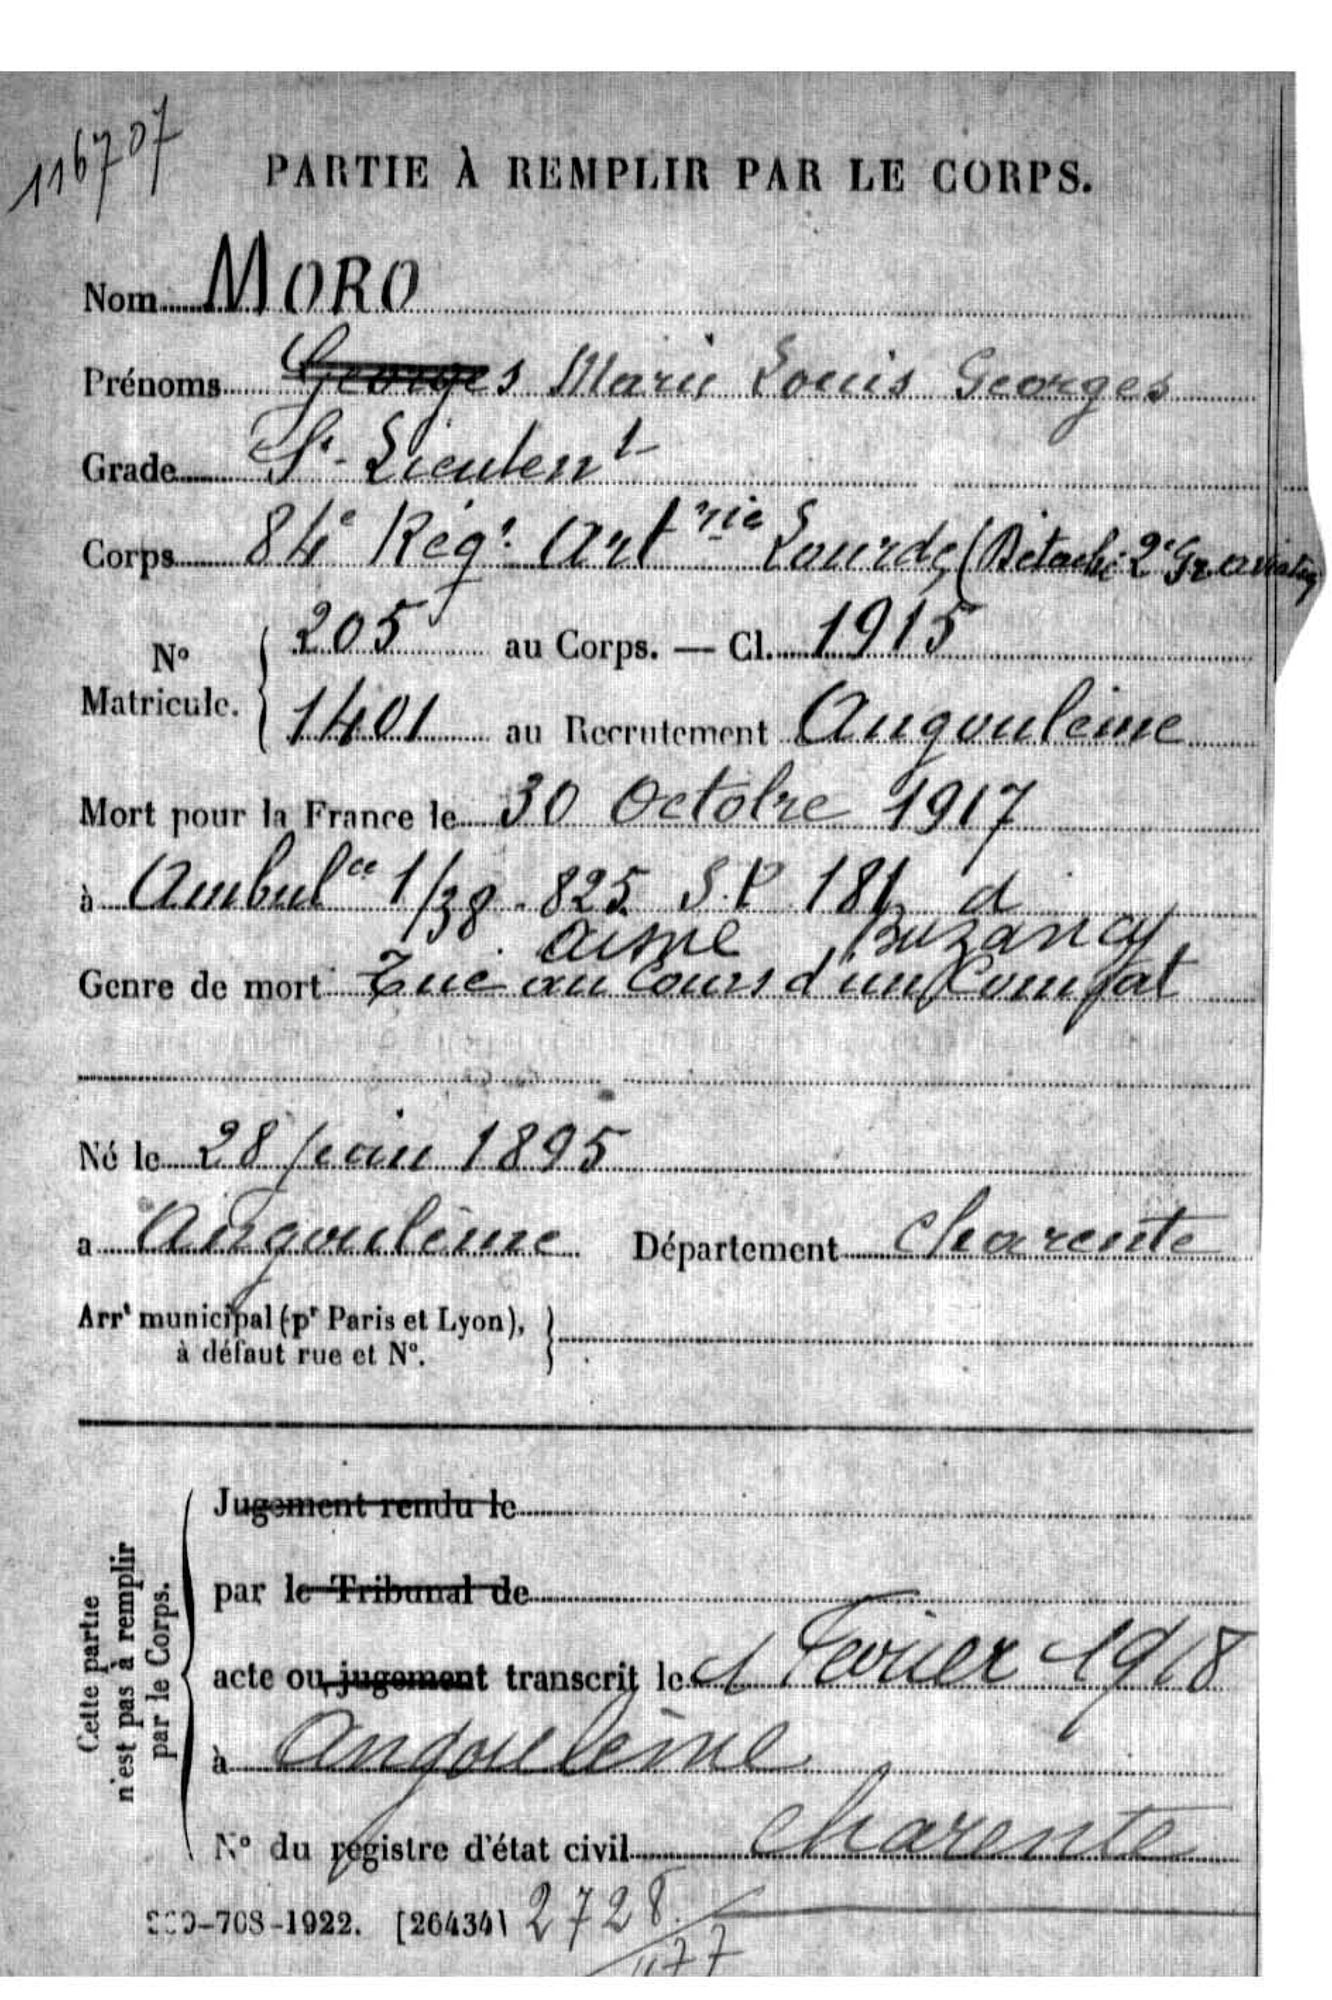 116707
PARTIE À REMPLIR PAR LE CORPS.
Nom MORO
Prénoms Georges Marie Louis Georges
Grade Ss-Lieutent
Corps 84e Régt Artrie Lourde (Détaché 2e Gr. aviation
No Matricule. 205 au Corps. — Cl. 1915
1401 au Recrutement Angoulême
Mort pour la France le 30 Octobre 1917
à Ambulce 1/38 . 825 S.P 181 d
Aisne Buzancy
Genre de mort Tué au cours d'un Combat
Né le 28 juin 1895
a Angoulême Département Charente
Arrt municipal (pr Paris et Lyon),
à défaut rue et No.
Cette partie
n'est pas à remplir
par le Corps.
Jugement rendu le
par le Tribunal de
acte ou jugement transcrit le 1 Fevrier 1918
à Angoulême
No du registre d'état civil Charente
708-1922. [26434] 2728